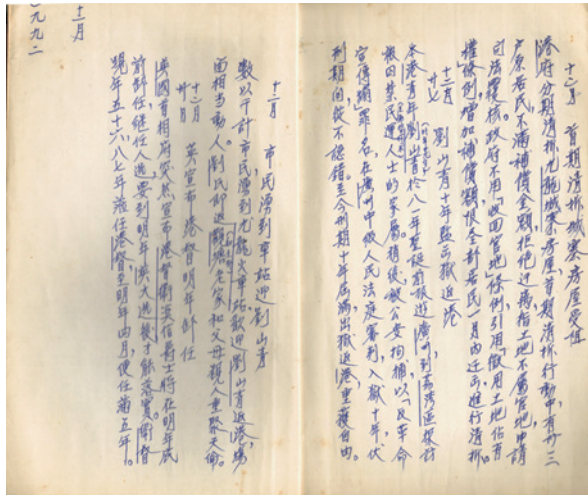 十二月 首期清拆城寨房屋受阻
港府分期清拆九龍城寨房屋首期清拆行動中,有廿三
戶原居民不滿補償金額,拒絕迁出,稱指土地不屬官地,申請
司法覆核,政府不用「收回官地」條例,引用「徵用土地佔有
權」條例,增加補償額,限全部居民一月內迁出,進行清拆。
十二月 廿七 劉山青十年監出獄返港
本港青年劉山青於八一年聖誕前旅遊廣州,到荔灣區探訪
被囚禁民運人士的家屬,稍後,被公安拘捕,以「反革命
宣傳煽」罪名,在廣州中級人民法庭審判,入獄十年,伏
刑期間,從不認錯,至今刑期十年屆滿出獄返港,重獲自由。
十二月 市民湧到車站迎劉山青
數以千計市民,湧到九龍火車站歡迎劉山青返港,場
面相當動人,劉氏即返觀塘老家,和父母親人重聚天倫。
十二月 卅日 英宣布港督明年卸任
英國首相府突然宣布港督衛奕信爵士將在明年底
前卸任,繼任人選要到明年英大選後才能落實。衛督
現年五十六,八七年蒞任港督,至明年四月便任滿五年。
一九九二
十二月